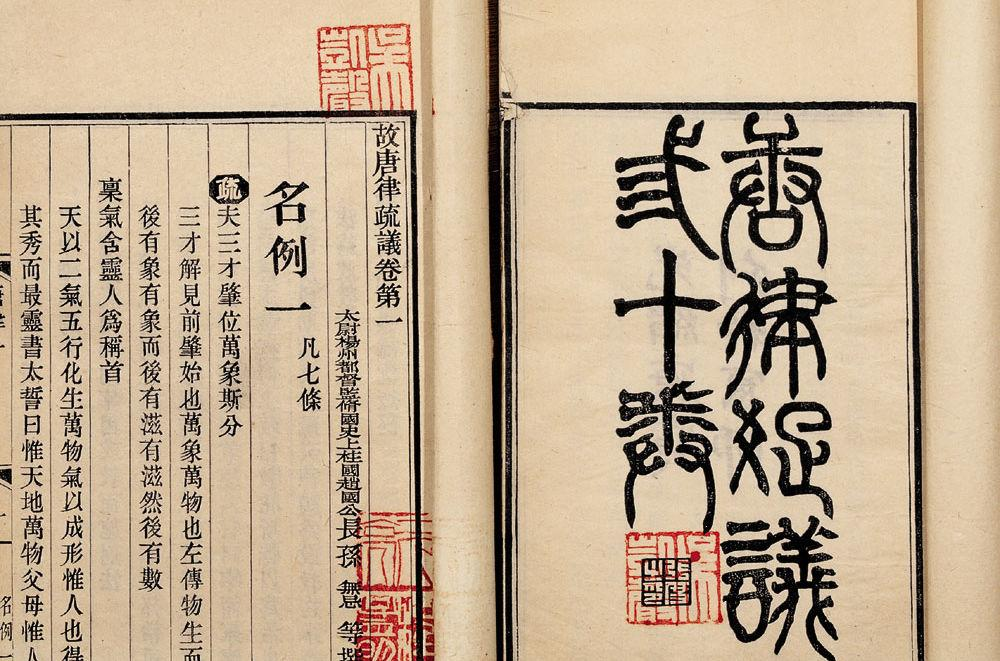 唐律疏議
弎十卷
吳凱聲
吳凱聲
故唐律疏議卷第一
太尉楊州都督監修國史上柱國趙國公長孫無忌等撰
名例一
凡七條
疏夫三才肇位萬象斯分
三才解見前肇始也萬象萬物也左傳物生而
後有象有象而後有滋有滋然後有數
稟氣含靈人爲稱首
天以二氣五行化生萬物氣以成形惟人也得
其秀而最靈書太誓曰惟天地萬物父母惟人
名例一